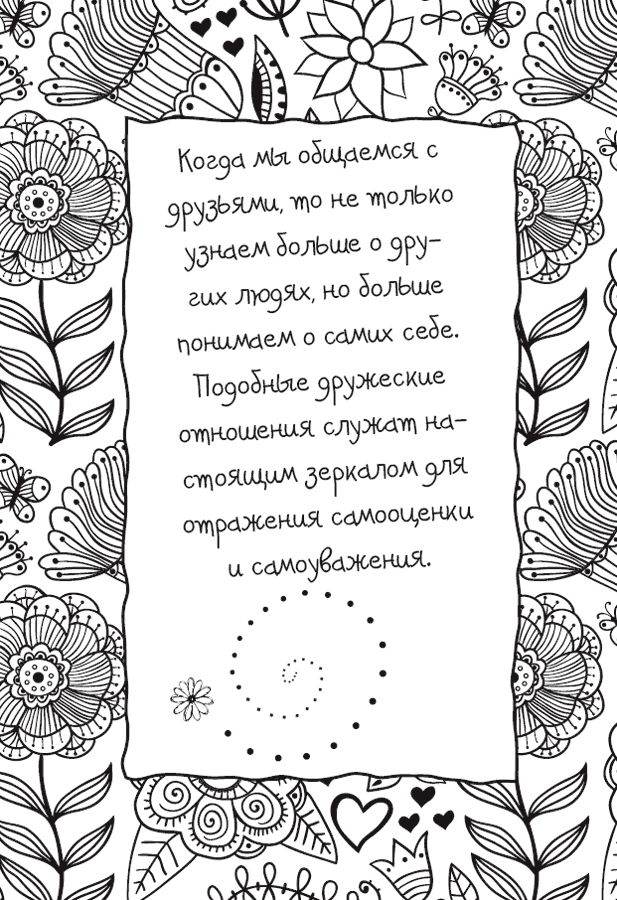 Когда мы общаемся с
друзьями, то не только
узнаем больше о дру-
гих людях, но больше
понимаем о самих себе.
Подобные дружеские
отношения служат на-
стоящим зеркалом для
отражения самооценки
и самоуважения.